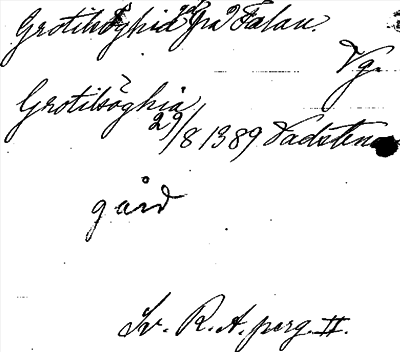 Grotilsöghia
Vg.
Grotilsöghia
29/8 1389 Vadstena
gård
Sv. R. A. perg. II.